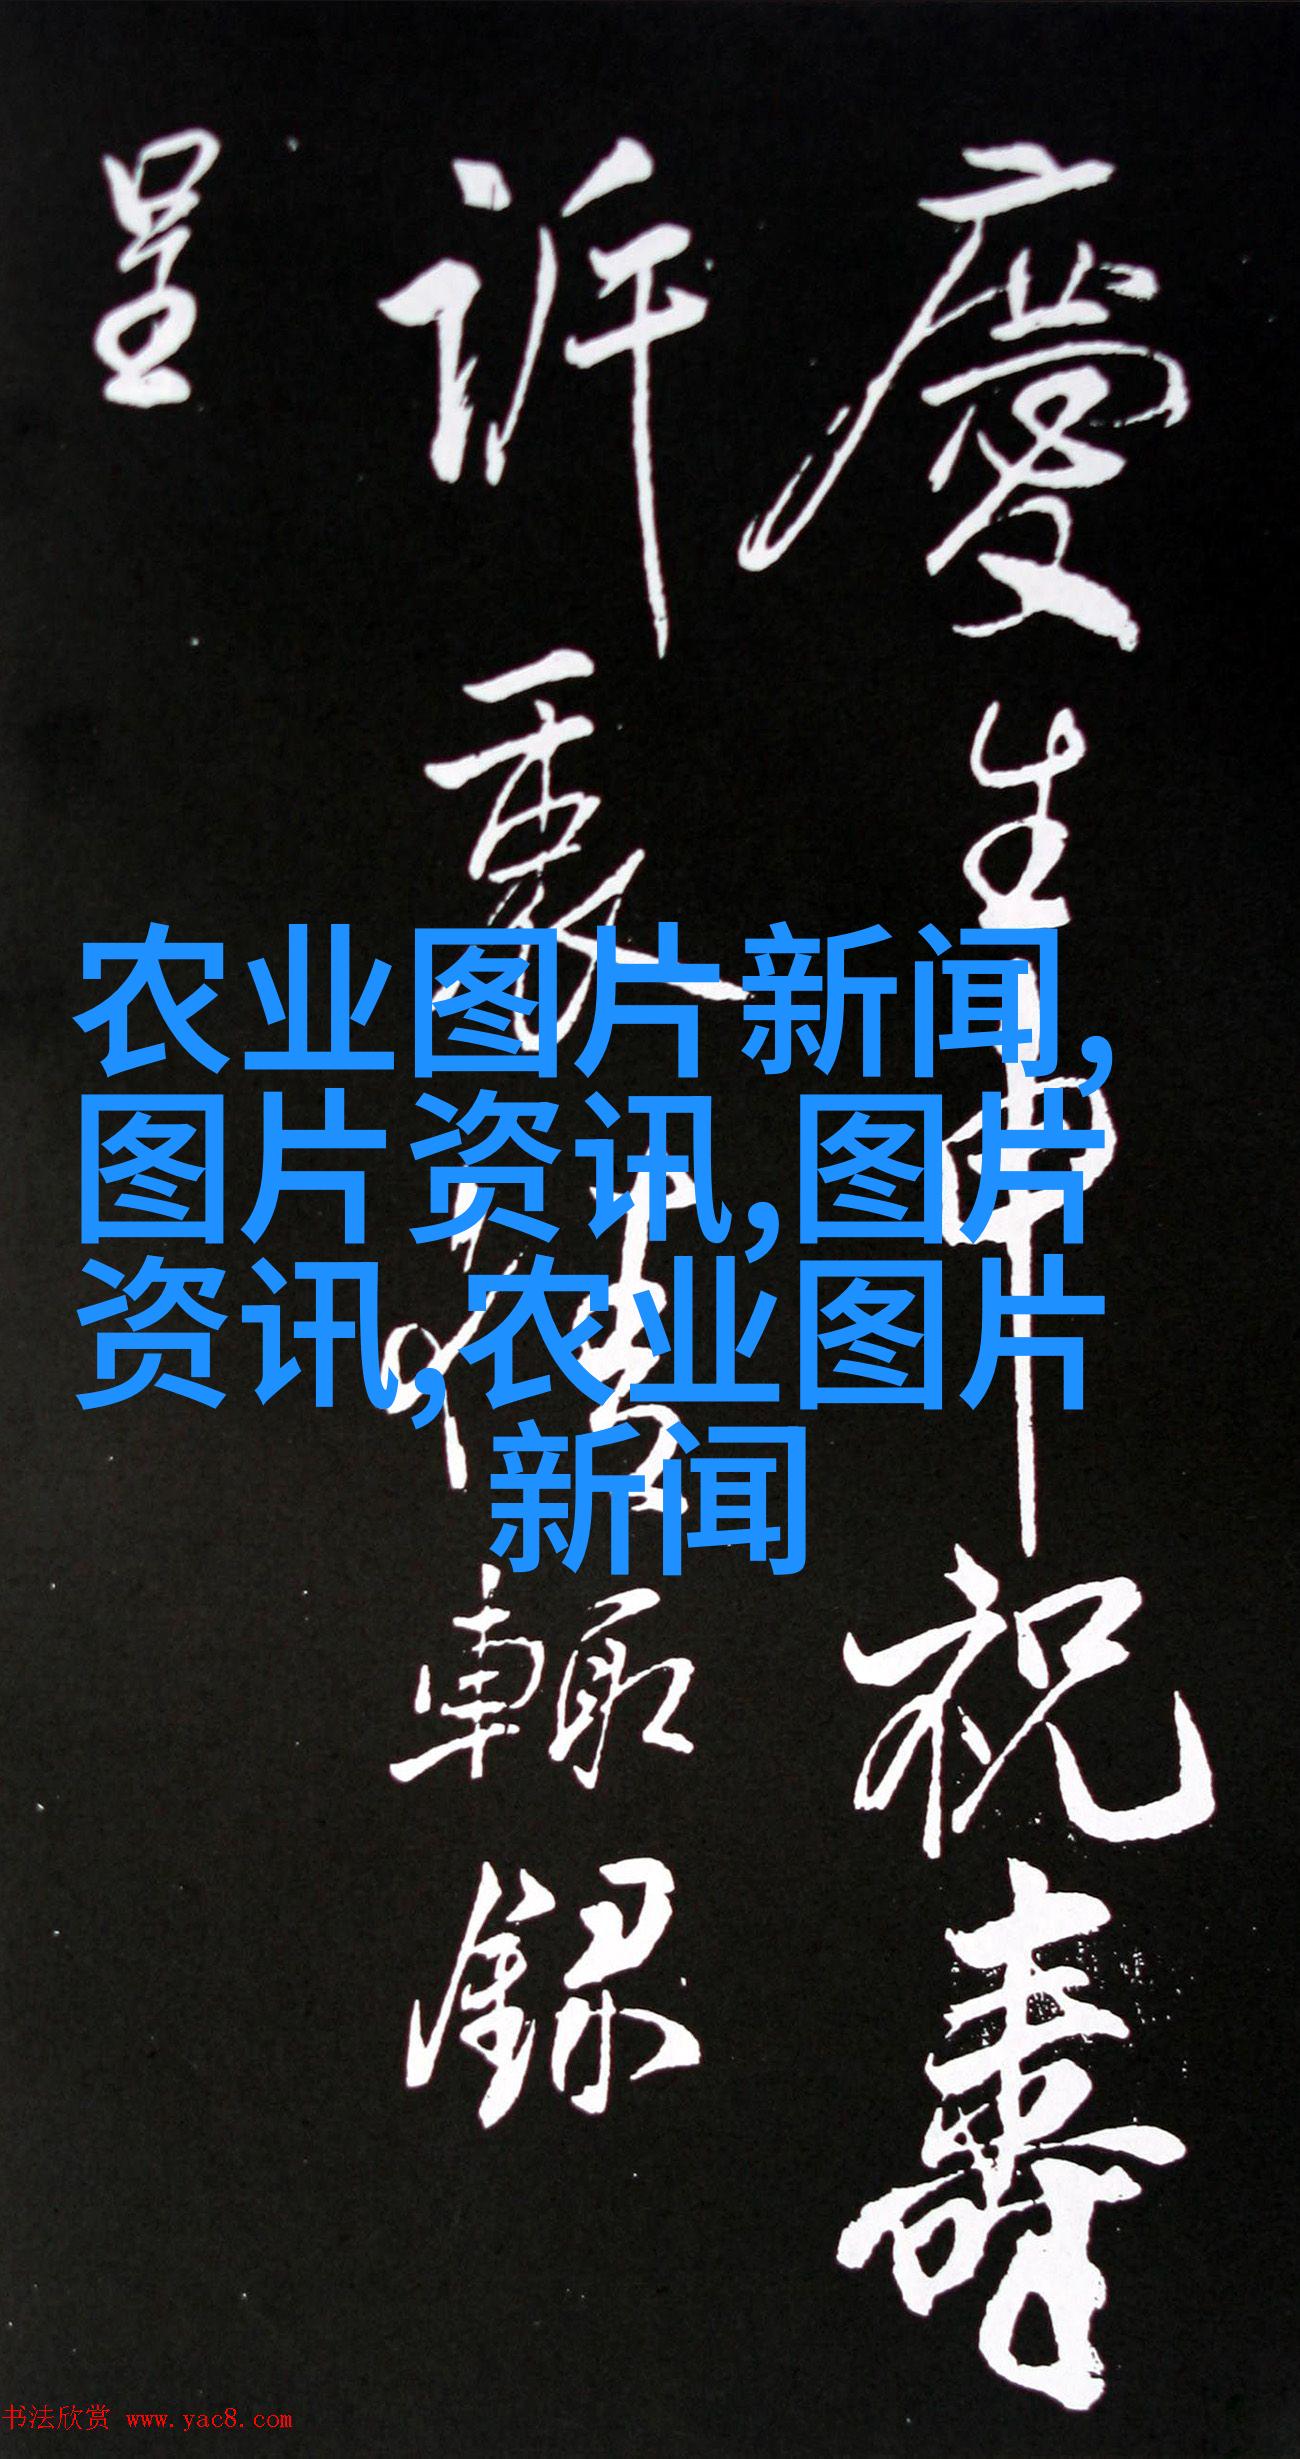 慶生申祝壽
訢裏情輒錄
呈
农业图片新闻,
图片资讯,图片
资讯,农业图片
新闻
书法欣赏 www.yac8.com